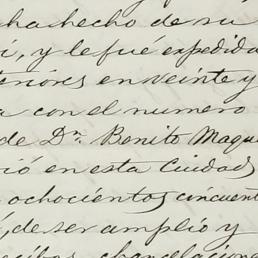 ha hecho de su
, y le fué expedida
teriores en veinte y
a con el numero
de Dn. Benito Maqu
rió en esta Ciudad
ochocientos cincuent
, de ser amplio y
cibos, chancelacion